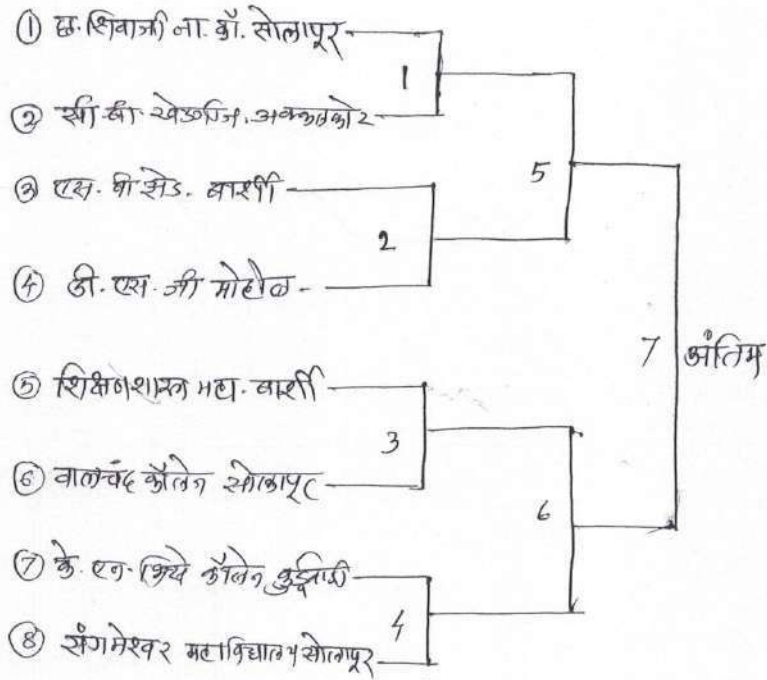 ① छ. शिवाजी ना. कॉ. सोलापूर
1
② सी. बी. खेडगिज. अक्कलकोट
5
③ एस. बी झेड. बार्शी
2
④ डी. एस. जी मोहोळ
7 अंतिम
⑤ शिक्षणशास्त्र महा. बार्शी
3
⑥ वालचंद कॉलेज सोलापूर
6
⑦ के. एन. भिसे कॉलेज कुर्डूवाडी
4
⑧ संगमेश्वर महाविद्यालय सोलापूर